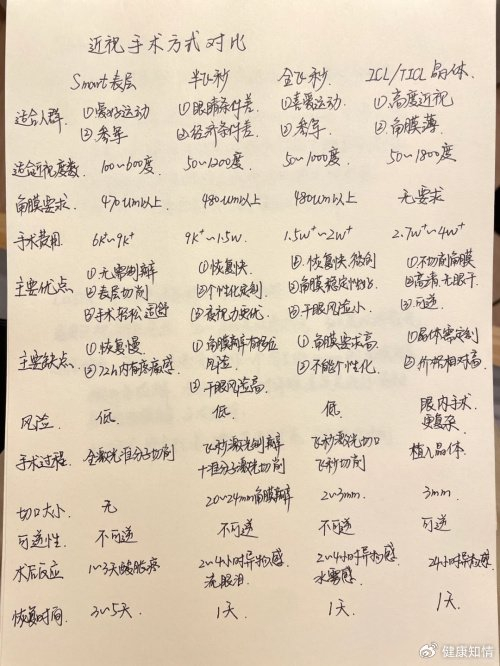 近视手术方式对比
Smart表层 半飞秒 全飞秒 ICL/TICL晶体.
适合人群 ①爱好运动 ①眼睛条件差 ①喜爱运动 ①高度近视
②参军 ②经济条件差 ②参军 ②角膜薄
适合近视度数 100~600度 50~1200度 50~1000度 50~1800度
角膜要求. 470um以上 480um以上 480um以上 无要求
手术费用. 6k+~9k+ 9k+~1.5w. 1.5w+~2w+ 2.7w+~4w+
主要优点 ①无需制瓣 ①恢复快. ①恢复快.微创 ①不切削角膜
②表层切削 ②个性化定制 ②角膜稳定性好. ②高清.无眼干
③手术轻松 ③夜视力更优 ③干眼风险小. ③可逆
主要缺点. ①恢复慢 ①角膜瓣有移位风险 ①角膜要求高. ①晶体需定制
②72h内有疼痛感 ②干眼风险高. ②不能个性化. ②价格相对高.
风险 低. 低. 低 眼内手术.更复杂.
手术过程. 全激光准分子切削 飞秒激光制瓣 飞秒激光切口 植入晶体.
+准分子激光切削 飞秒切削
切口大小. 无 20~24mm角膜瓣 2~3mm. 3mm.
可逆性. 不可逆 不可逆 不可逆 可逆
术后反应 1~3天酸胀疼 2~4小时异物感 2~4小时异物感 24小时异物感
流眼泪. 水雾感.
恢复时间. 3~5天. 1天. 1天. 1天.
健康知情